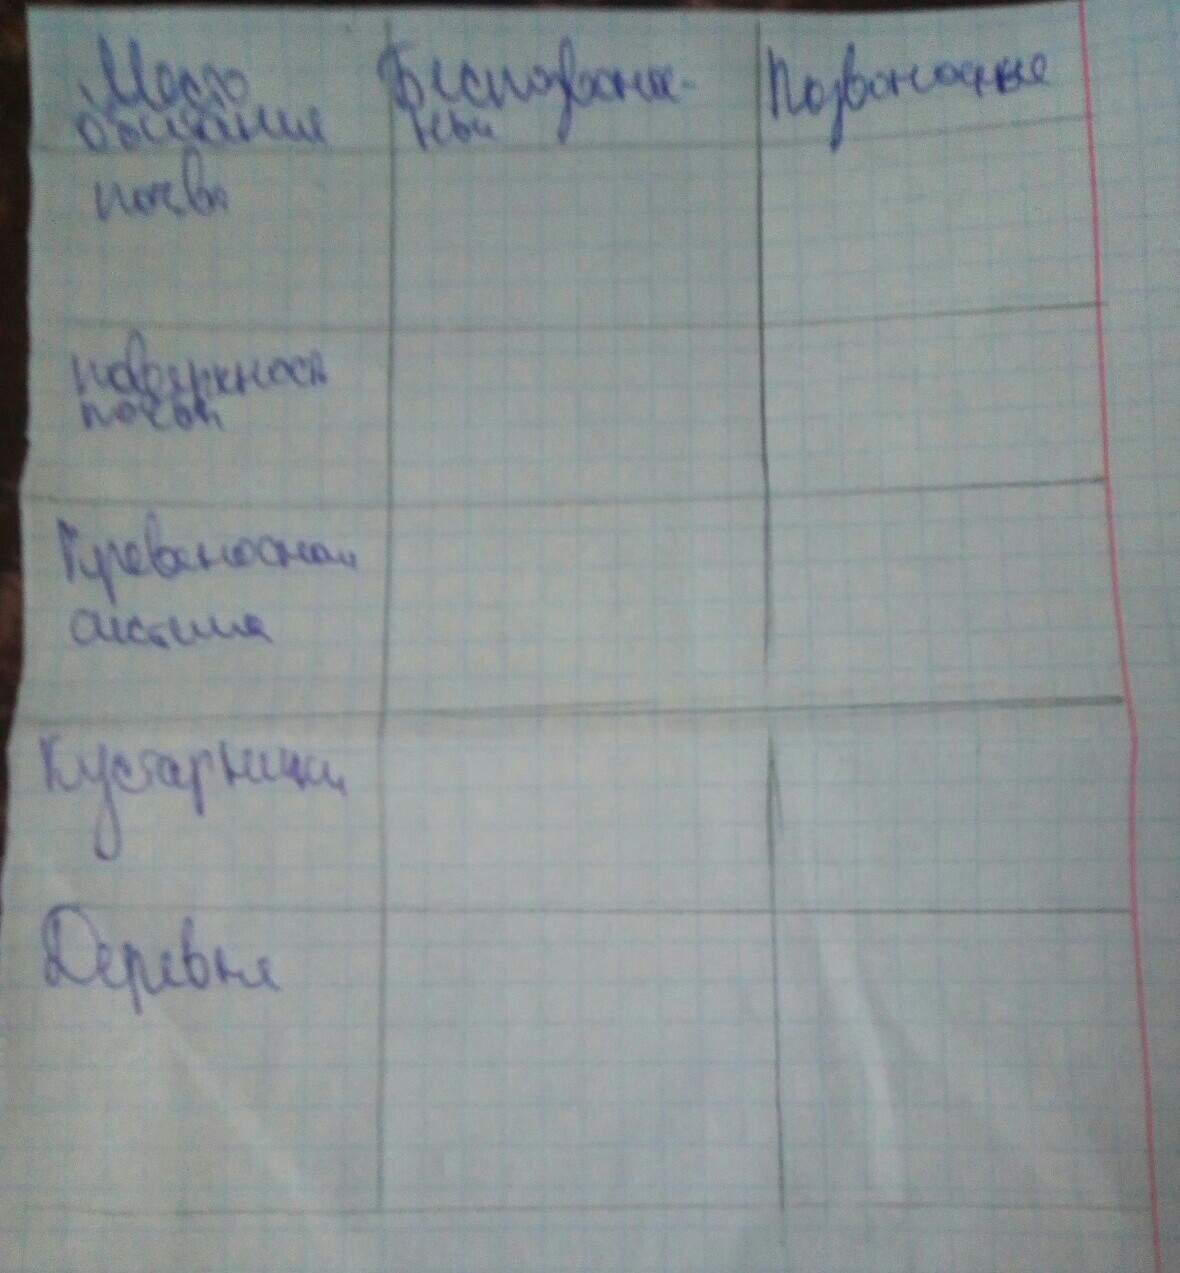 Место
обитания
Беспозвоноч-
ные
Позвоночные
почва
поверхность
почвы
Кустарники
Деревья